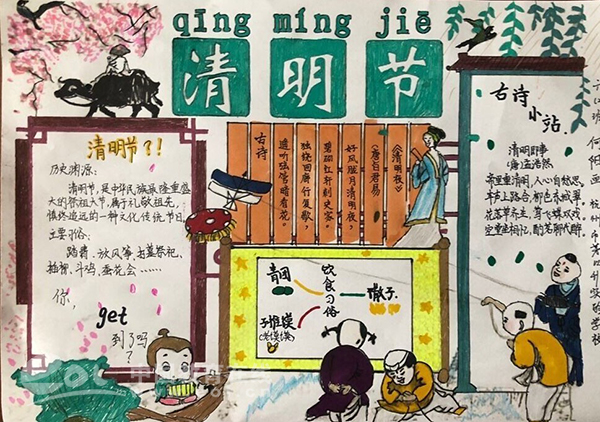 qīng míng jiē
清明节
清明节?!
历史渊源:
清明节,是中华民族最隆重盛
大的祭祖大节,属于礼敬祖先,
慎终追远的一种文化传统节日。
主要习俗:
踏青、放风筝、扫墓祭祀、
插柳、斗鸡、蚕花会……
你,
get
到了吗?
古诗
《清明夜》
(唐)白居易
好风胧月清明夜,
碧砌红轩刺史家。
独绕回廊行复歇,
遥听弦管暗看花。
青团
饮食习俗
馓子
子推馍
古诗
小站.
清明即事
(唐)孟浩然
帝里重清明,人心自愁思。
车声上路合,柳色东城翠。
花落草齐生,莺飞蝶双戏。
空堂坐相忆,酌茗聊代醉。